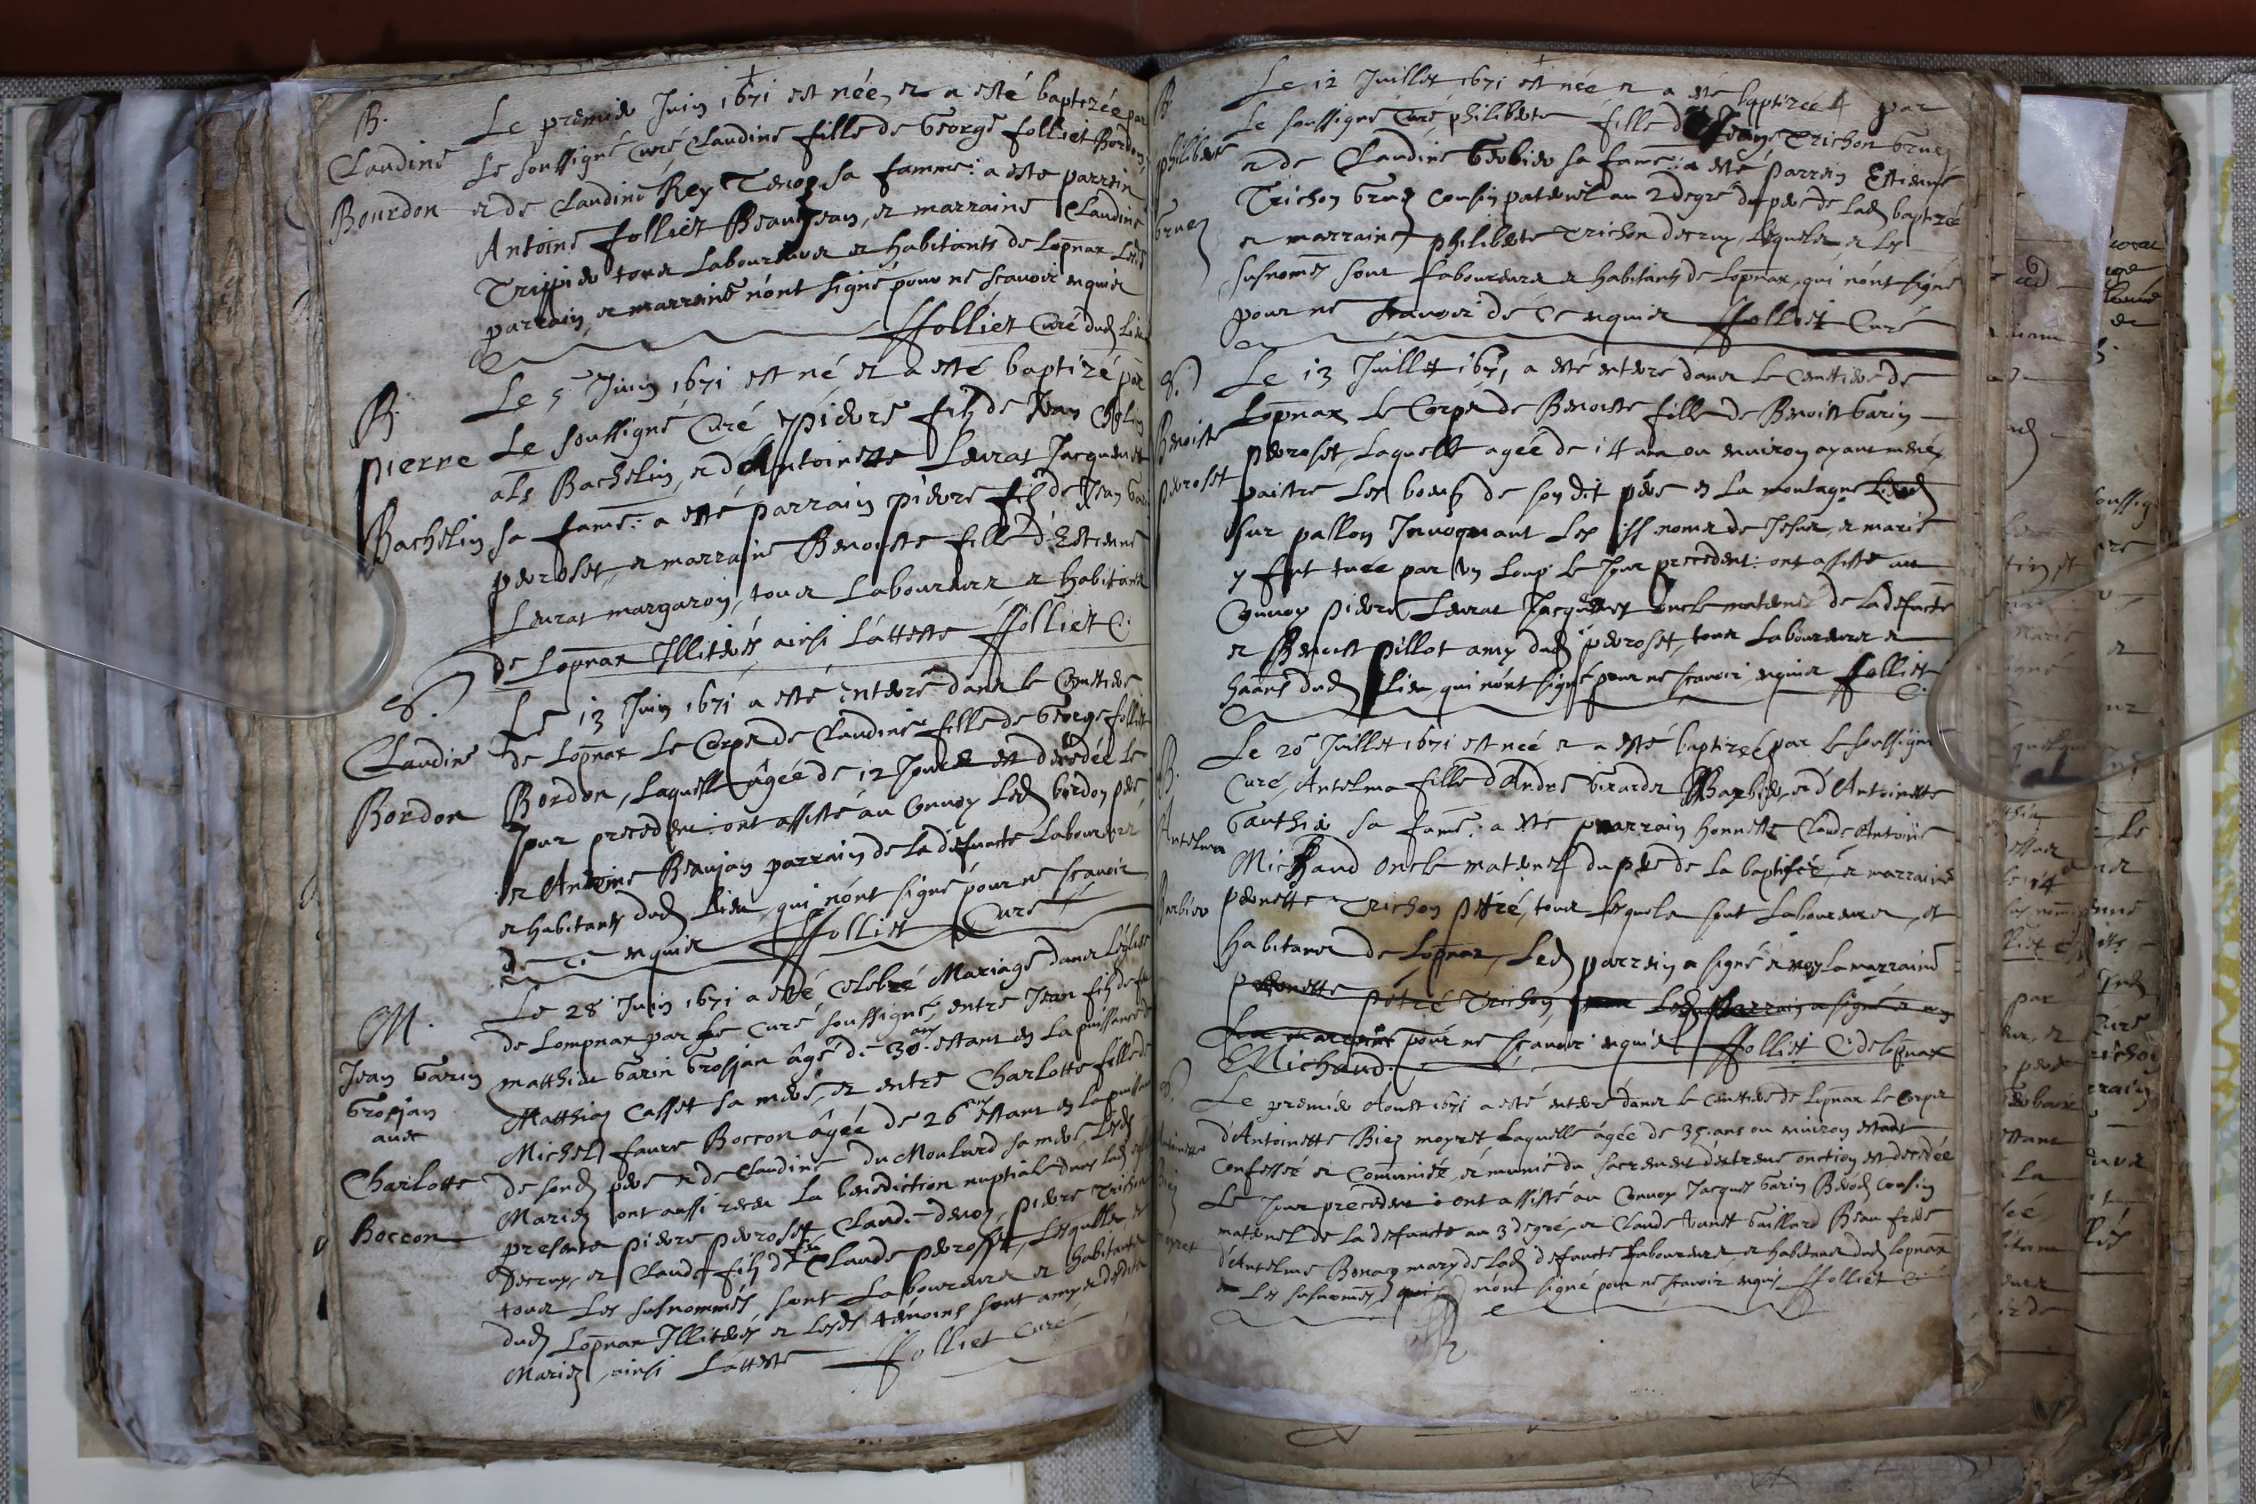 B.
Claudine
Bourdon
Le premier Juin 1671 est née, et a esté baptizée par
Le soussigné Curé Claudine fille de George folliet Bordon,
et de Claudine Rey Tenoz sa famme: a este parrein
Antoine folliet Beaujean, et marraine Claudine
Trippier tous Laboureurs et habitants de Lopnax Lesds
parrain et marreine n'ont signé pour ne scavoir enquis
ffolliet Curé dud Lieu
B.
pierre
Bachelin
Le 5 Juin 1671 est né et a esté baptizé par
Le soussigné Curé pierre filz de Jean
als Bachelin, et d'Antoinette Leurat Jacquemet
sa fame: a esté parrain pierre filz de Jean
peroset, et marraine Benoiste fille d'Estienne
Leurat margaron, tous Laboureurs et habitants
de Lopnax Illiterés ainsi L'atteste ffolliet C.
S.
Claudine
Bordon
Le 13 Juin 1671 a esté enterré dans le Cemettiere
de Lopnax Le Corps de Claudine fille de George folliet
Bordon, Laquelle âgée de 12 Jours est décédée le
Jour precedent: ont assisté au Convoy Led bordon pere,
et Antoine Beaujan parrain de la défuncte Laboureurs
et habitants dud Lieu, qui n'ont signé pour ne scavoir
de ce enquis ffolliet Curé
M.
Jean Garin
Grosjan
avec
Charlotte
Boccon
Le 28 Juin 1671 a esté Celebré Mariage dans L'église
de Lompnax par Le Curé soussigné, entre Jean filz de feu
matthieu Garin Grosjan âgé de 30 ans estant en La puissance de
Matthia Casset sa mere, et entre Charlotte fille de
Michel faure Boccon âgée de 26 ans estant en la puissance
de sond pere et de Claudine du Moulard sa mere, Lesds
Mariez ont aussi receu La benediction nuptiale dans lad
presents pierre peroset, Claude devoz, pierre Trichon
Decruy, et Claude filz de feu Claude peroset, Lesquels et
tous Les susnommés, sont Laboureurs et habitants
dud Lopnax Illiterés et Lesds temoins sont amys desdits
Mariez, ainsi L'atteste ffolliet Curé
B
philiberte
Gruez
Le 12 Juillet 1671 est née et a été baptizée par
Le soussigné Curé philiberte fille de Jean Trichon Gruez
et de Claudine Gerbier sa fame: a esté parrein Estienne
Trichon Gruez Cousin paternel au 2 degré du pere de lad baptizée
et marraine philiberte Trichon decruy, Lesquels et Les
susnomés sont Laboureurs et habitants de Lopnax, qui n'ont signé
pour ne scavoir de ce enquis ffolliet Curé
S.
Benoiste
peroset
Le 13 Juillet 1671 a esté enterré dans le Cemettiere de
Lopnax Le Corps de Benoiste fille de Benoist Garin
peroset, Laquelle agée de 14 ans ou environ ayant mené
paistre Les boeufz de son dit père en La montagne
sur pallon Invoquant Les sss noms de Jesus, et marie
y fut tuée par un Loup Le Jour precedent: ont assisté au
Convoy pierre Leurat Jacquemet oncle maternel de La defuncte
et Benoist pillot amy dud peroset, tous Laboureurs et
haans dud Lieu qui n'ont signé pour ne scavoir enquis ffolliet
C.
B.
Antelma
Barbier
Le 20 Juillet 1671 est neé et a esté baptizeé par le soussigné
Curé, Antelma fille d'André Girardz Barbier, et d'Antoinette
Gauthier sa fame: a esté parrain honneste Claude Antoine
Michaud oncle maternel du pere de La baptisée, et marraine
pernette Trichon pétré, tous Lesquels sont Laboureurs, et
habitans de Lopnax, Led parrein a signé et non la marraine
pernette pétré Trichon, Led parrain a signé et non
La marreine pour ne scavoir enquis ffolliet C. de Lopnax
Michaud.
S.
Antoinette
Biez
moyret
Le premier Aoust 1671 a esté enterré dans le Cemettiere de Lopnax Le Corps
d'Antoinette Biez moyret, Laquelle âgée de 35 ans ou environ estant
Confessée et Comuniée, et munie du sacrement d'extreme onction est decedée
Le Jour precedent: ont assisté au Convoy Jacques Garin Cousin
maternel de La defuncte au 3 degré, et Claude Gaillard Beau frere
d'Antelme mary de Lad defuncte Laboureurs et habitans dud Lopnax
Les susnomés, qui n'ont signé pour ne scavoir enquis ffolliet C.